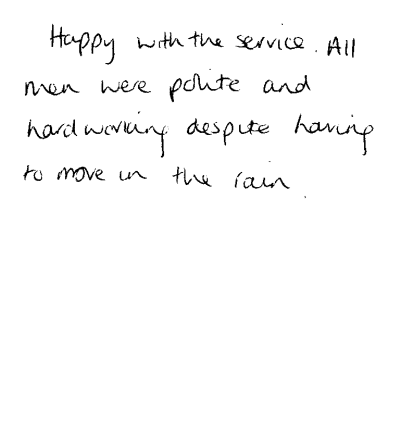 Happy with the service. All
men were polite and
hardworking despite having
to move in the rain.